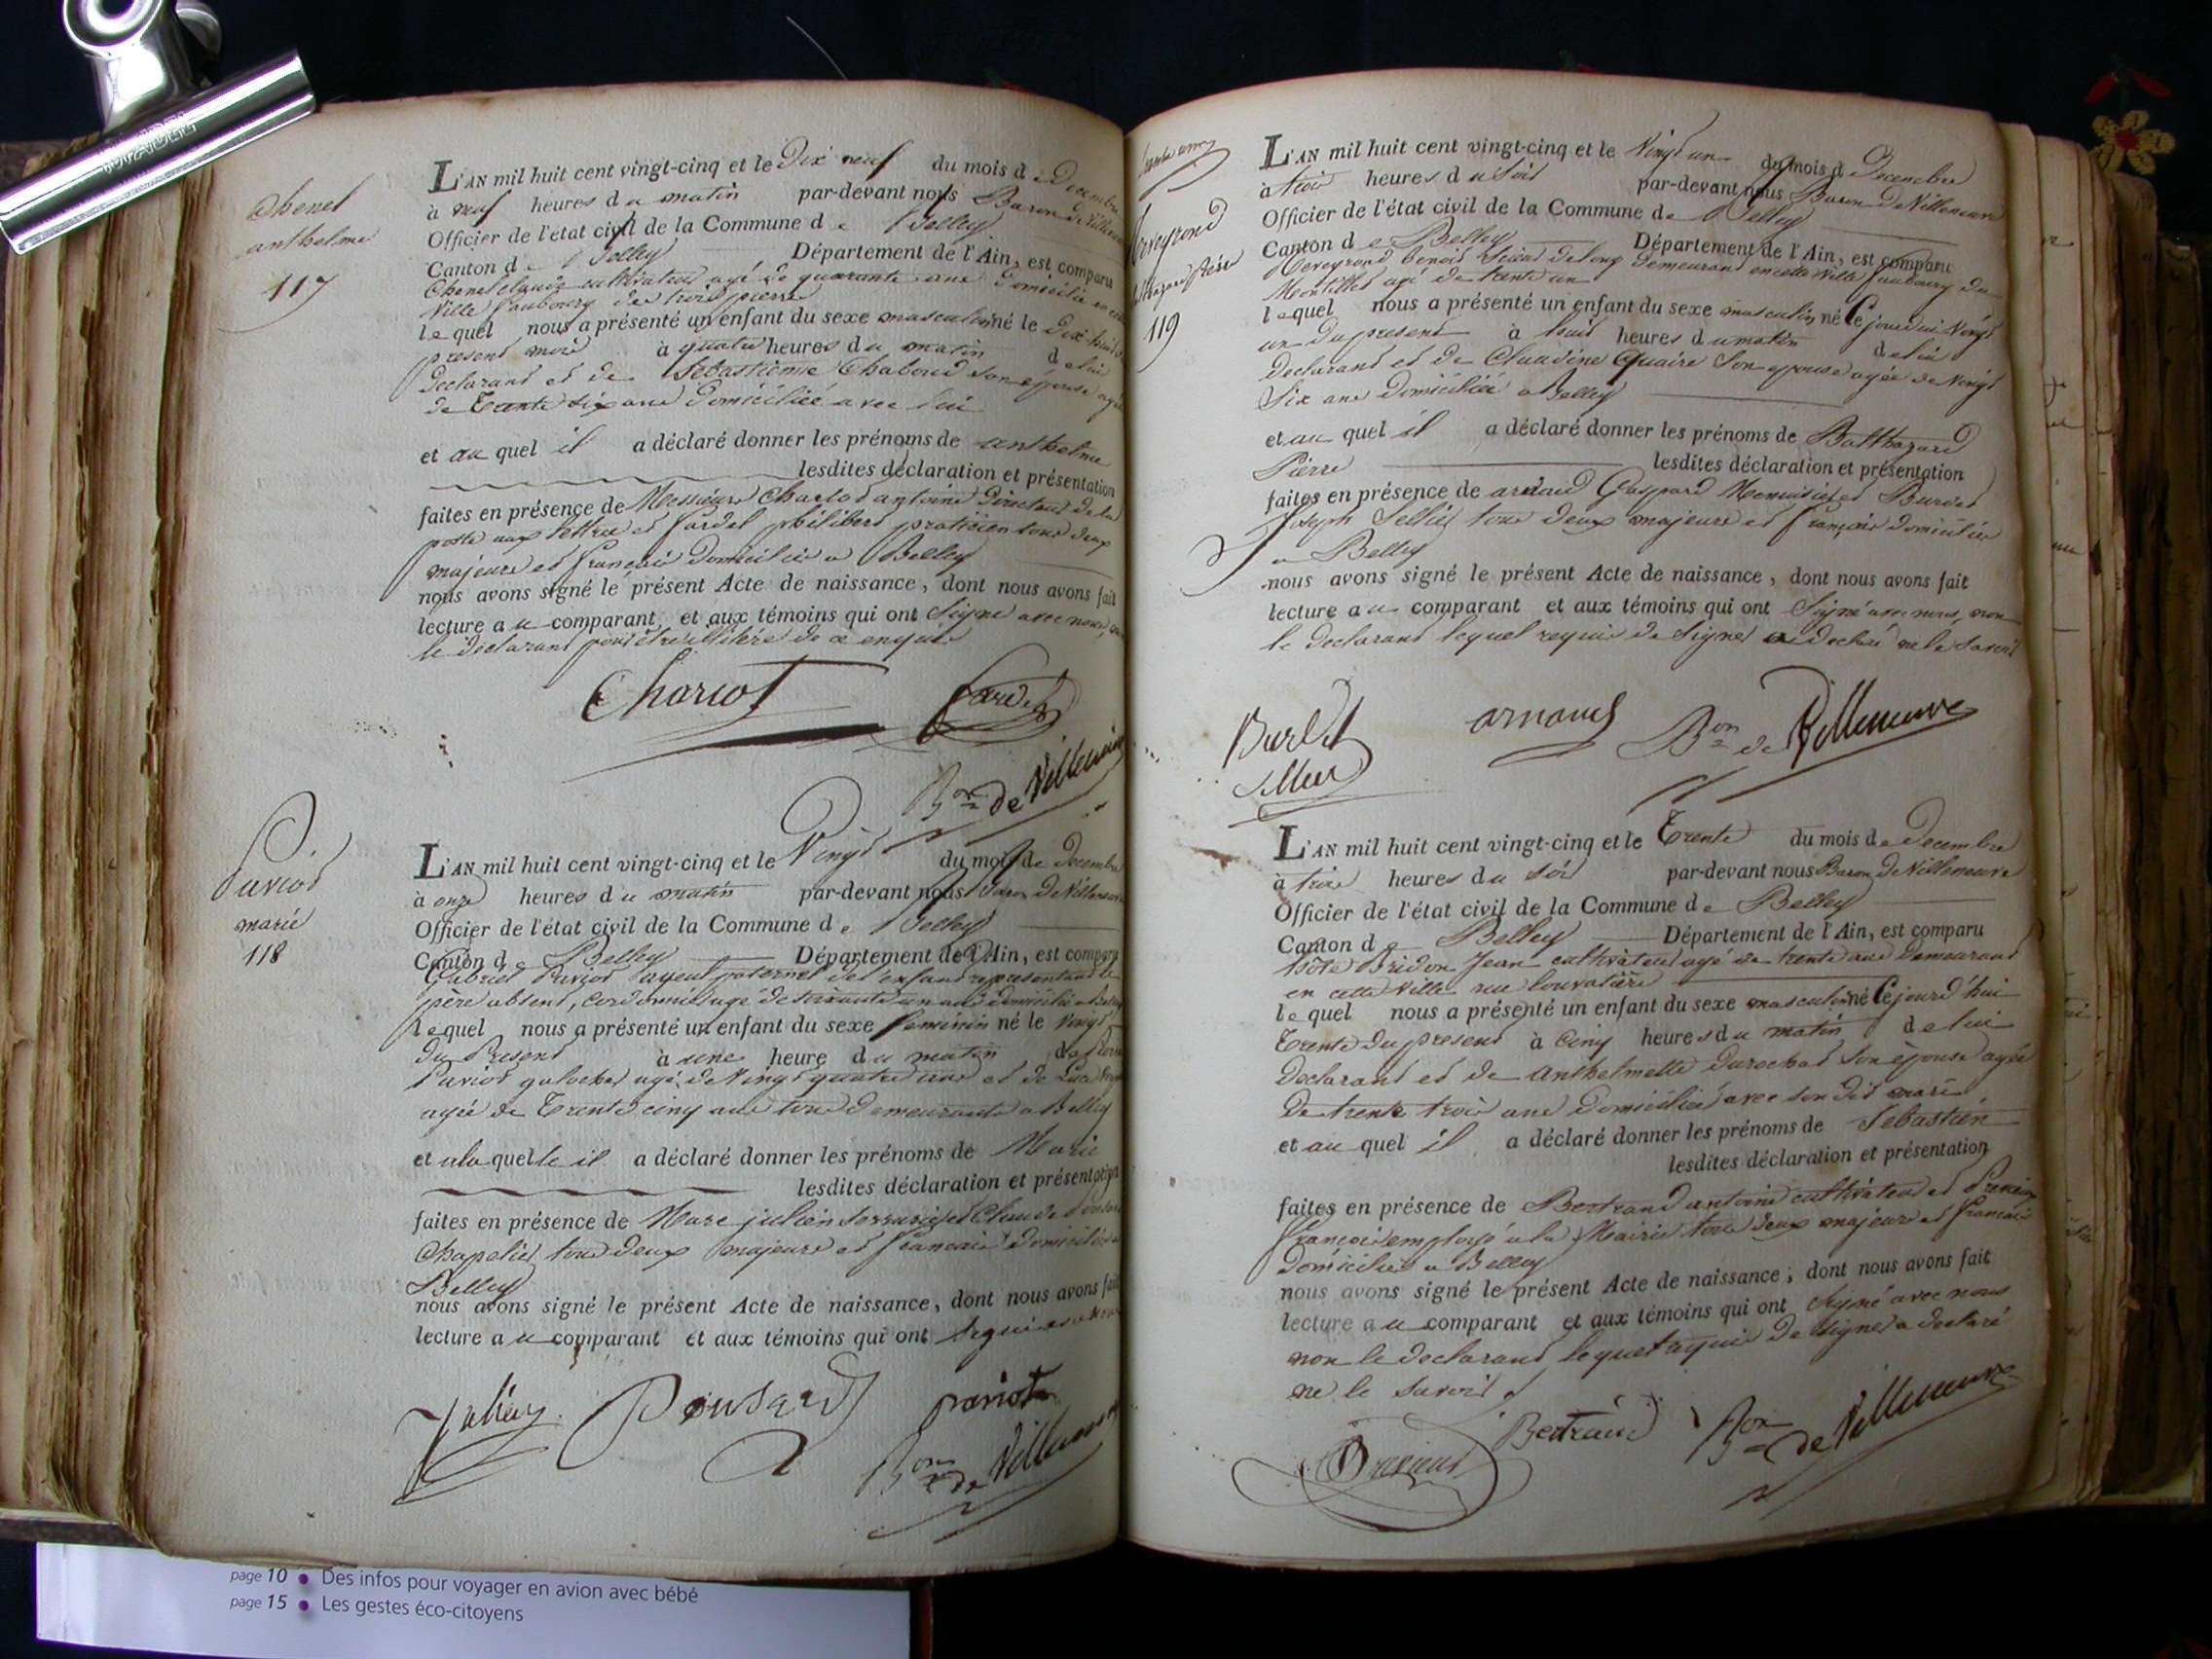 Chenel
anthelme
117
L'AN mil huit cent vingt-cinq et le Dix neuf du mois de Decembre
à neuf heures du matin par-devant nous Baron de Villeneuve
Officier de l'état civil de la Commune de Belley
Canton de Belley Département de l'Ain, est comparu
Chenel claude cultivateur agé de quarante ans domicilié en cette
Ville faubourg des trois pierres
lequel nous a présenté un enfant du sexe masculin né le Dix huit
present mois à quatre heures du matin de lui
Declarant et de Sebastienne Chaboud son épouse agée
de Trente six ans Domiciliée avec lui
et au quel il a déclaré donner les prénoms de anthelme
lesdites déclaration et présentation
faites en présence de Messieurs Charlot antoine Directeur de la
poste aux lettres et fardel philibert praticien tous deux
majeurs et français domiciliés a Belley
nous avons signé le présent Acte de naissance, dont nous avons fait
lecture au comparant et aux témoins qui ont signé avec nous,
le déclarant pour être illiteré de ce enquis
Charlot Fardel
Bon de Villeneuve
Puviot
marie
118
L'AN mil huit cent vingt-cinq et le Vingt du mois de Decembre
à onze heures du matin par-devant nous Baron de Villeneuve
Officier de l'état civil de la Commune de Belley
Canton de Belley Département de l'Ain, est comparu
Gabriel Puviot ayeul paternel de l'enfant representant le
père absent, Cordonnier agé de soixante un ans domicilié a Belley
lequel nous a présenté un enfant du sexe feminin né le Vingt
du Present à une heure du matin de
Puviot galochier agé de Vingt quatre ans et de Luce
agée de Trente cinq ans tous demeurants a Belley
et a la quelle il a déclaré donner les prénoms de Marie
lesdites déclaration et présentation
faites en présence de Marc julien serrurier et Claude Ponsard
Chapelier tous deux majeurs et français domiciliés a
Belley
nous avons signé le présent Acte de naissance, dont nous avons fait
lecture au comparant et aux témoins qui ont signé avec nous
Julien Ponsard Puviot
Bon de Villeneuve
Merveyrond
Balthazard Pierre
119
L'AN mil huit cent vingt-cinq et le Vingt un du mois de Decembre
à trois heures du Soir par-devant nous Baron De Villeneuve
Officier de l'état civil de la Commune de Belley
Canton de Belley Département de l'Ain, est comparu
Merveyrond benoit Scieur de long Demeurant en cette Ville faubourg du
Montillet agé de trente un
lequel nous a présenté un enfant du sexe masculin né Cejourdui Vingt
un Du present à huit heures du matin de lui
Declarant et de Claudine Quaire Son epouse agée de Vingt
Six ans Domiciliée a Belley
et au quel il a déclaré donner les prénoms de Balthazard
Pierre lesdites déclaration et présentation
faites en présence de arnaud Gaspard Menuisier et Burdet
Joseph Sellier tous deux majeurs et français domiciliés
a Belley
nous avons signé le présent Acte de naissance, dont nous avons fait
lecture au comparant et aux témoins qui ont Signé avec nous, non
le Declarant lequel requis de signer a declaré ne le savoir
Burdet arnaud Bon de Villeneuve
sellier
L'AN mil huit cent vingt-cinq et le Trente du mois de Decembre
à trois heures du soir par-devant nous Baron De Villeneuve
Officier de l'état civil de la Commune de Belley
Canton de Belley Département de l'Ain, est comparu
Jean cultivateur agé de trente ans Demeurant
en cette Ville rue louvatière
lequel nous a présenté un enfant du sexe masculin né Cejourd'hui
Trente du present à Cinq heures du matin de lui
Declarant et de Anthelmette Durochat Son épouse agée
De trente trois ans Domiciliée avec son dit mari
et au quel il a déclaré donner les prénoms de Sebastien
lesdites déclaration et présentation
faites en présence de Bertrand antoine cultivateur et
françois employé a la Mairie tous deux majeurs et français
Domiciliés a Belley
nous avons signé le présent Acte de naissance, dont nous avons fait
lecture au comparant et aux témoins qui ont signé avec nous
non le declarant lequel requis de signer a declaré
ne le savoir
Bertrand Bon de Villeneuve
page 10 • Des infos pour voyager en avion avec bébé
page 15 • Les gestes éco-citoyens